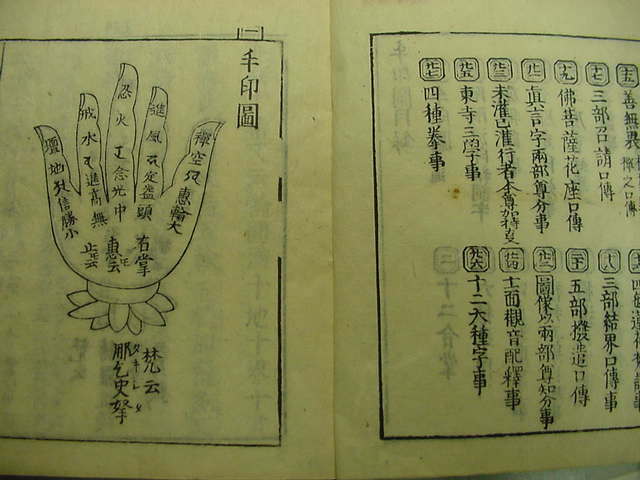 十五 善無畏
十七 三部召請口傳
八 三部結界口傳事
十九 佛菩薩花座口傳
二十 五部撥遣口傳
廿一 眞言字兩部尊分事
廿二 圖像以兩部尊知分事
廿三 未灌已灌行者本尊加持
廿四 十一面觀音配釋事
廿五 東寺三學事
廿六 十二大種字事
廿七 四種拳事
一 手印圖
禪空 惠輪大
進風 定蓋頭
忍火 念光中
戒水 進高無
檀地 信勝小
右掌
惠云
止云
梵云
那乞史拏